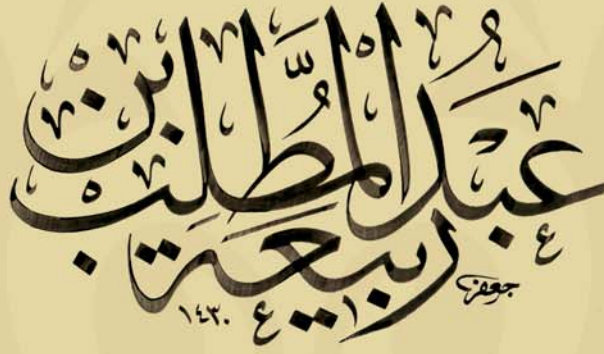 عَبْدُ الْمُطَّلِب بْن
رَبِيعَة
جعفر
١٤٣٠